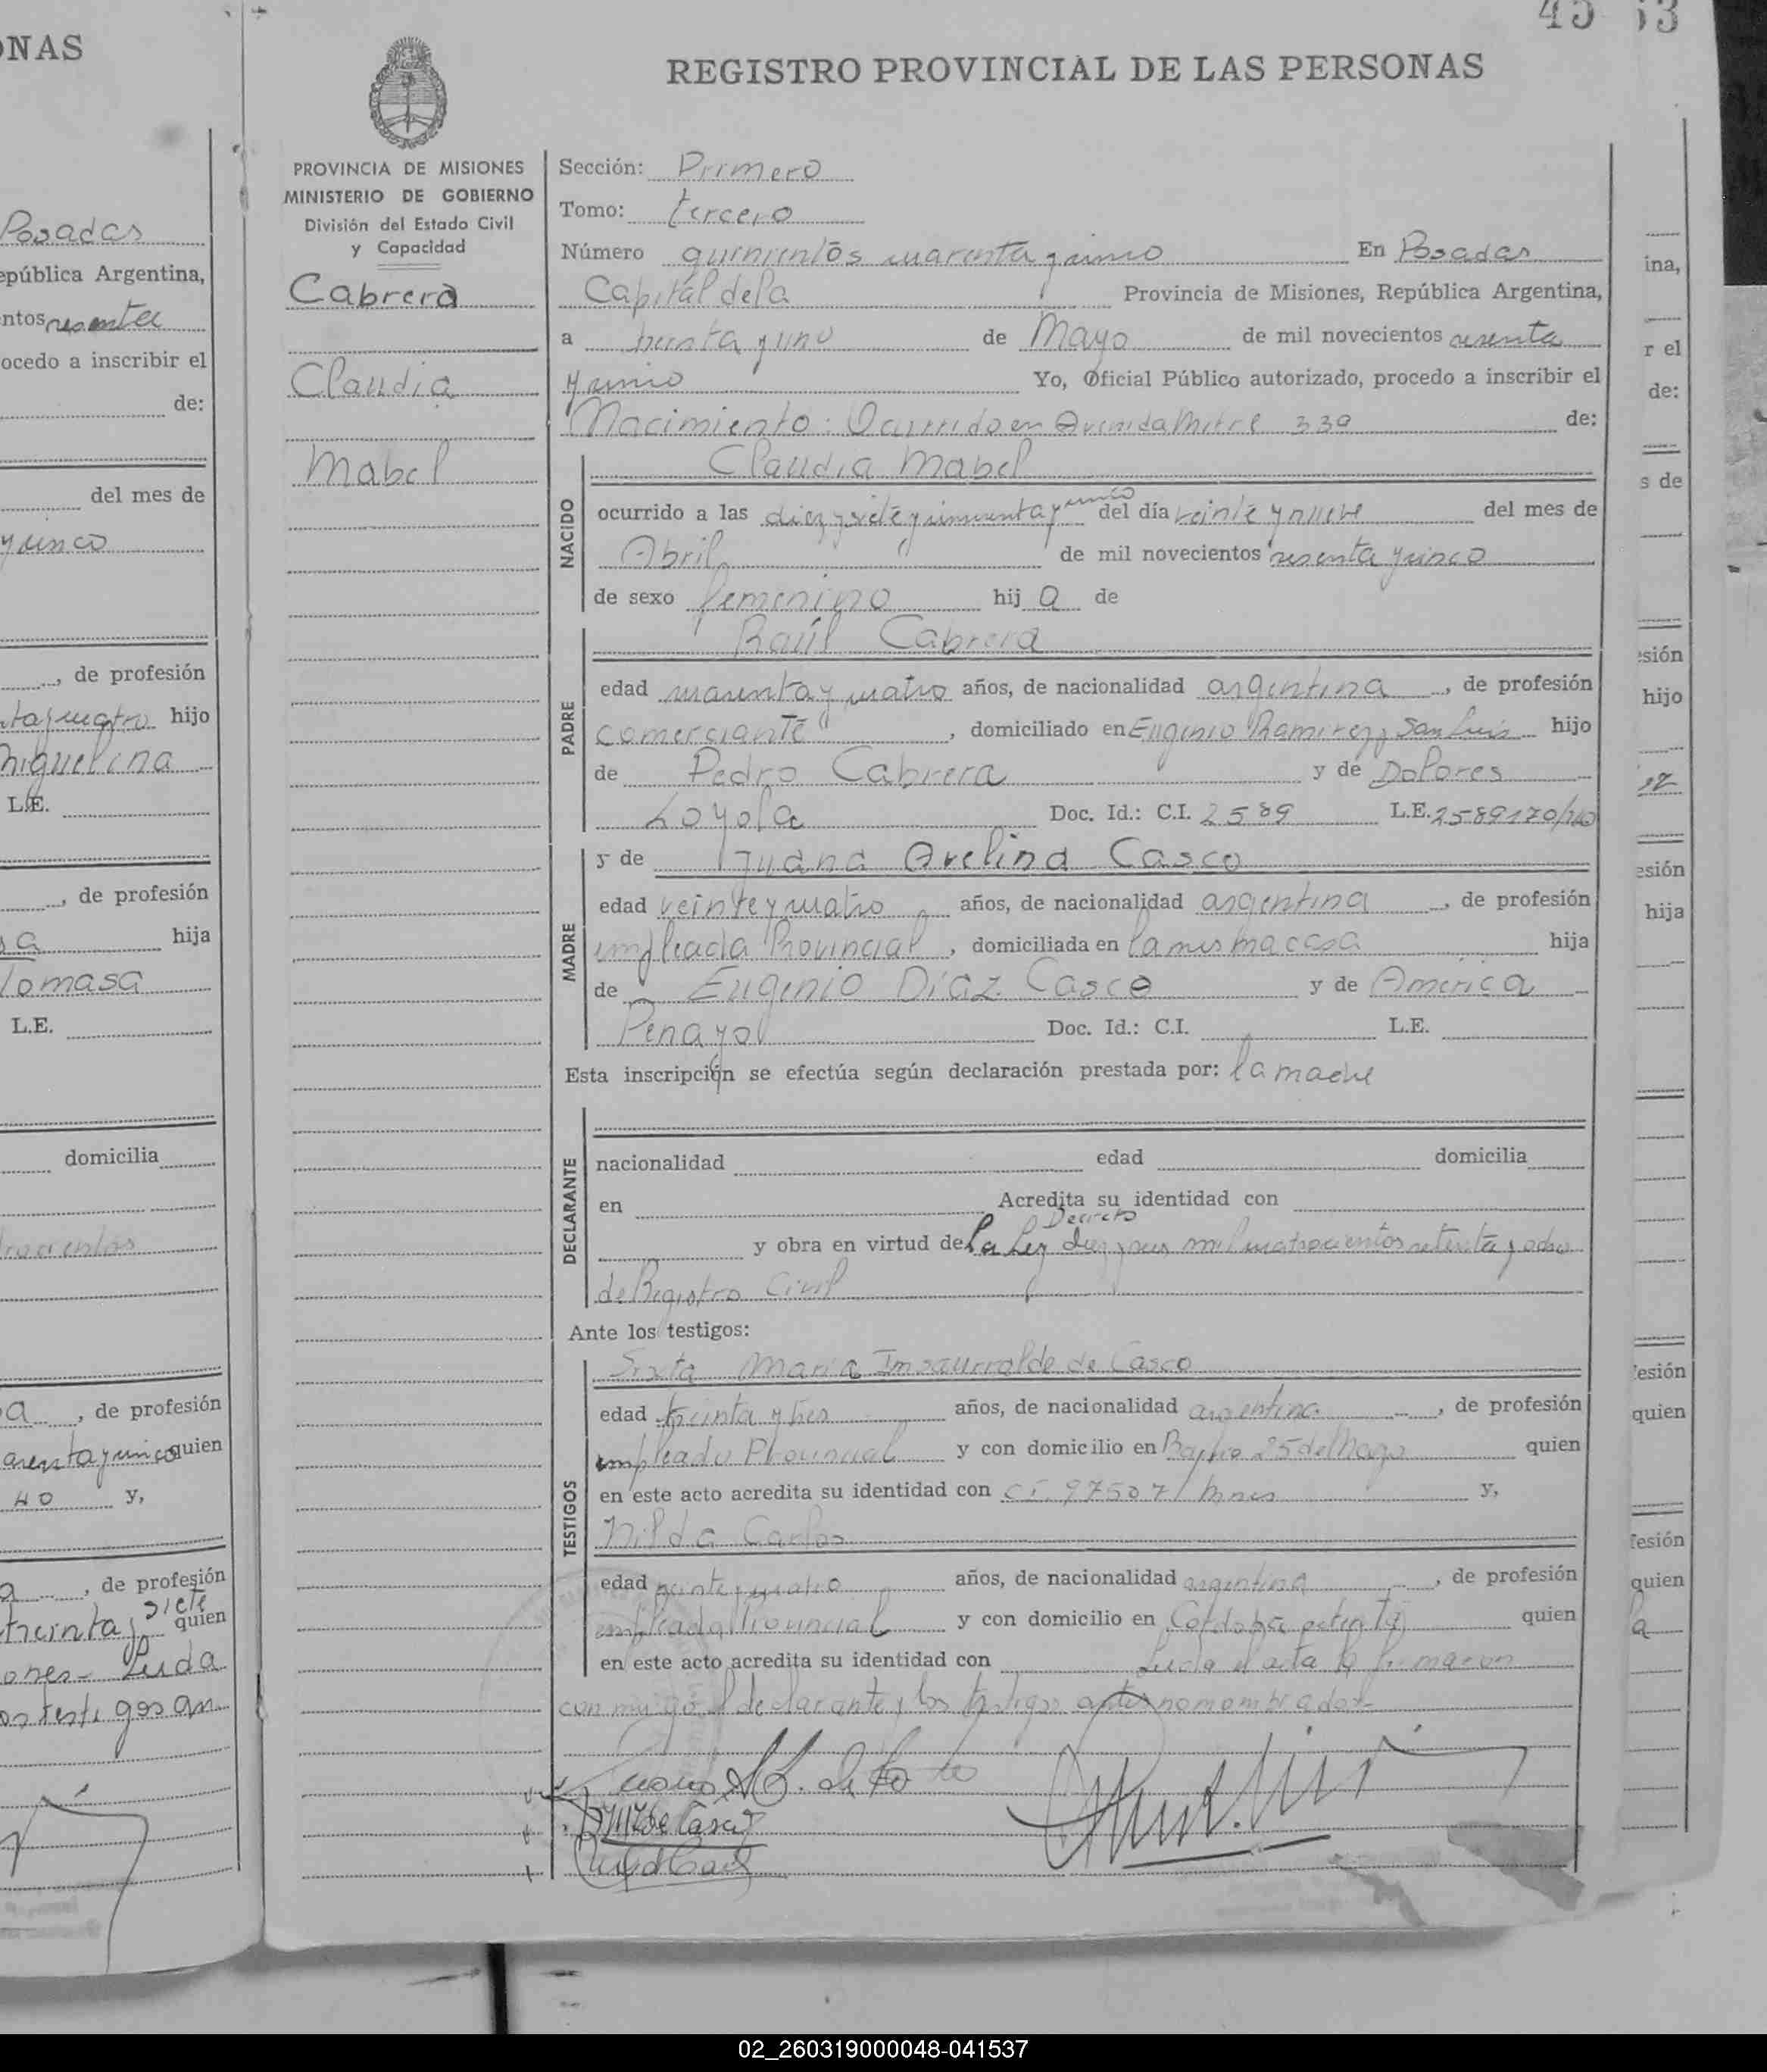 ONAS
Posadas
epública Argentina,
ntos
ocedo a inscribir el
de:
del mes de
y cinco
, de profesión
hijo
Miguelina
L.E.
, de profesión
hija
Tomasa
L.E.
domicilia
a , de profesión
quien
40 y,
a , de profesión
siete
treinta y quien
ones - Leida
45 53
REGISTRO PROVINCIAL DE LAS PERSONAS
PROVINCIA DE MISIONES
MINISTERIO DE GOBIERNO
División del Estado Civil
y Capacidad
Cabrera
Claudia
Mabel
Sección: Primero
Tomo: tercero
Número quinientos cuarenta y cinco En Posadas
Capital de la Provincia de Misiones, República Argentina,
a treinta y uno de Mayo de mil novecientos sesenta
y cinco Yo, Oficial Público autorizado, procedo a inscribir el
Nacimiento: Ocurrido en Avenida Mitre 339 de:
NACIDO
Claudia Mabel
ocurrido a las diez y siete y cincuenta y cinco del día veinte y nueve del mes de
Abril de mil novecientos sesenta y cinco
de sexo femenino hij a de
PADRE
Raúl Cabrera
edad cuarenta y cuatro años, de nacionalidad argentina , de profesión
comerciante , domiciliado en Eugenio Ramirez y San Luis hijo
de Pedro Cabrera y de Dolores
Loyola Doc. Id.: C.I. 2589 L.E. 2589170/
MADRE
y de Juana Avelina Casco
edad veinte y cuatro años, de nacionalidad argentina , de profesión
empleada Provincial , domiciliada en la misma casa hija
de Eugenio Díaz Casco y de América
Penayo Doc. Id.: C.I. L.E.
Esta inscripción se efectúa según declaración prestada por: la madre
DECLARANTE
nacionalidad edad domicilia
en Acredita su identidad con
Decreto
y obra en virtud de la Ley diez y seis mil cuatrocientos setenta y ocho
de Registro Civil
Ante los testigos:
TESTIGOS
Sixta María Insaurralde de Casco
edad treinta y tres años, de nacionalidad argentina , de profesión
empleado Provincial y con domicilio en Barrio 25 de Mayo quien
en este acto acredita su identidad con C.I. 97507/Mnes y,
Nilda Carlos
edad veinte y cuatro años, de nacionalidad argentina , de profesión
empleada Provincial y con domicilio en Córdoba quien
en este acto acredita su identidad con Leida el acta la firmaron
conmigo el declarante y los testigos antes nomombrados-
ina,
r el
de:
s de
esión
hijo
esión
hija
fesión
quien
fesión
quien
a
02_260319000048-041537